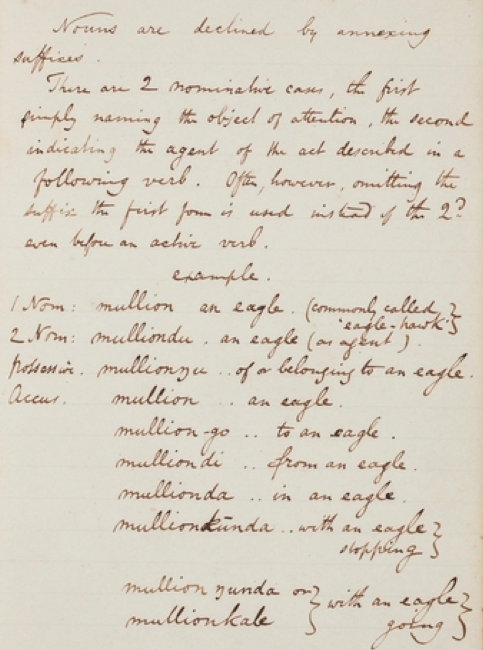 Nouns are declined by annexing
suffixes.
There are 2 nominative cases, the first
simply naming the object of attention, the second
indicating the agent of the act described in a
following verb. Often, however, omitting the
suffix the first form is used instead of the 2d
even before an active verb.
example.
1 Nom: mullion an eagle. (commonly called
"eagle-hawk")
2 Nom: mulliondu. an eagle (as agent).
Possessiv. mullionŋu .. of or belonging to an eagle.
Accus. mullion .. an eagle.
mullion-go .. to an eagle.
mulliondi .. from an eagle.
mullionda .. in an eagle.
mullionkūnda .. with an eagle
stopping
mullionŋunda or
mullionkale
with an eagle
going